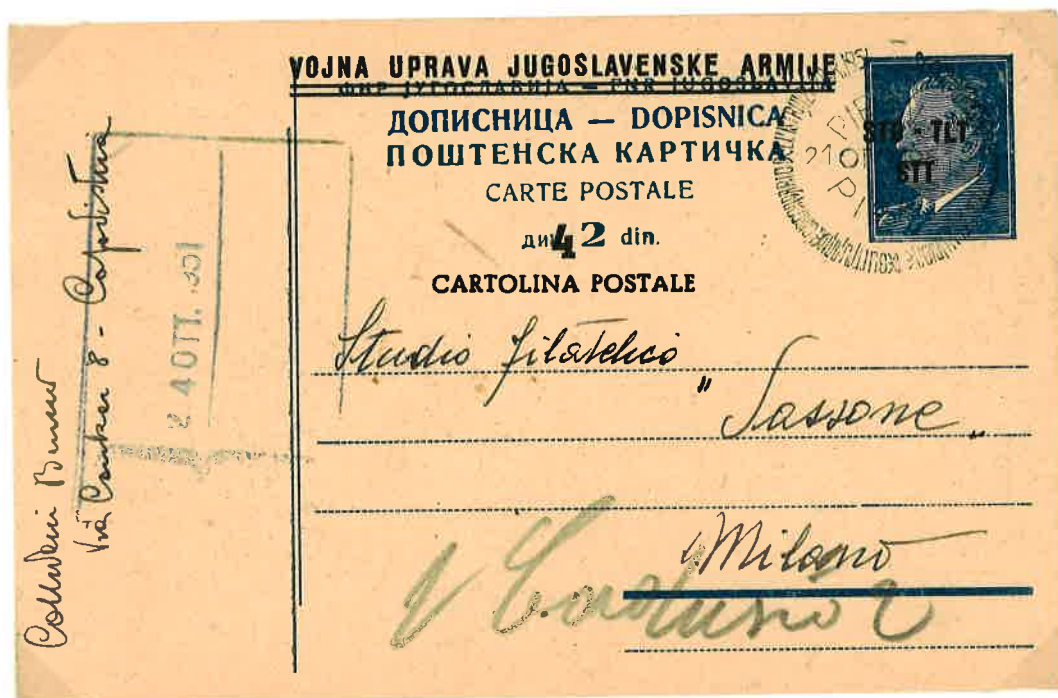 VOJNA UPRAVA JUGOSLAVENSKE ARMIJE
ФНР ЈУГОСЛАВИЈА — FNR JUGOSLAVIJA
ДОПИСНИЦА — DOPISNICA
ПОШТЕНСКА КАРТИЧКА
CARTE POSTALE
дин 42 din.
CARTOLINA POSTALE
STO - TLT
STT
21
Studio Filatelico
" Sassone "
Milano
2 4 OTT. 1951
8 - Capodistria